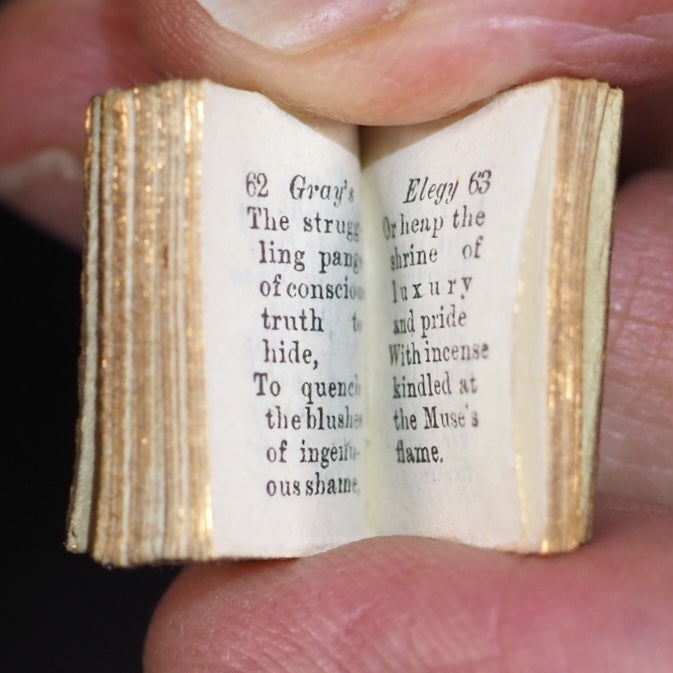 62 Gray's
The strugg-
ling pangs
of conscious
truth to
hide,
To quench
the blushes
of ingenu-
ous shame,
Elegy 63
Or heap the
shrine of
luxury
and pride
With incense
kindled at
the Muse's
flame.